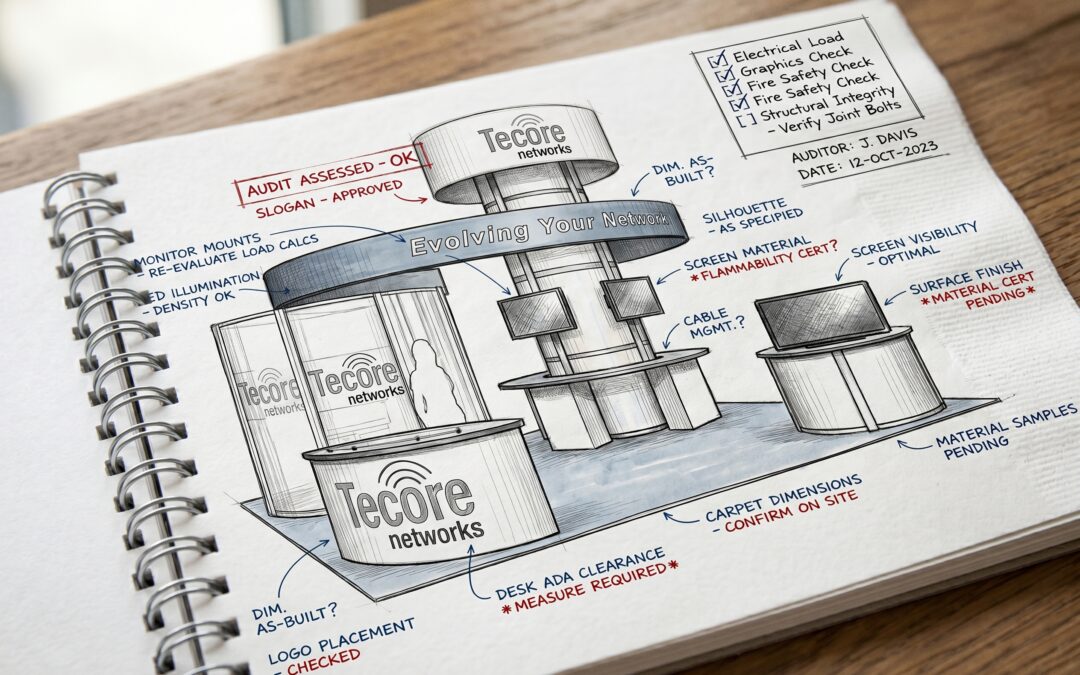 Electrical Load
Graphics Check
Fire Safety Check
Fire Safety Check
[ ] Structural Integrity
- Verify Joint Bolts
AUDITOR: J. DAVIS
DATE: 12-OCT-2023
AUDIT ASSESSED - OK
SLOGAN - APPROVED
Tecore
networks
DIM. AS-
BUILT?
MONITOR MOUNTS
- RE-EVALUATE LOAD CALCS
Evolving Your Network
SILHOUETTE
- AS SPECIFIED
SCREEN MATERIAL
*FLAMMABILITY CERT?
SCREEN VISIBILITY
- OPTIMAL
ED ILLUMINATION
- DENSITY OK
SURFACE FINISH
*MATERIAL CERT
PENDING*
CABLE
MGMT.?
Tecore
networks
Tecore
networks
Tecore
networks
MATERIAL SAMPLES
PENDING
CARPET DIMENSIONS
- CONFIRM ON SITE
DESK ADA CLEARANCE
*MEASURE REQUIRED*
DIM.
AS-BUILT?
LOGO PLACEMENT
- CHECKED